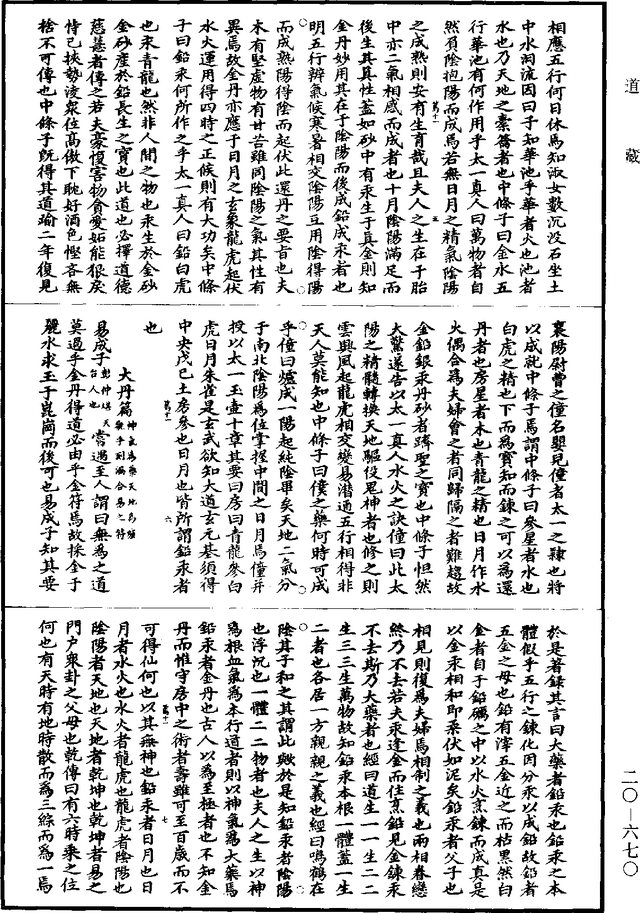 道藏
相應五行何日休焉知淑女數沉没石坐土
中水洄流因曰子知華池乎華者火也池者
水也乃天地之橐籥者也中條子曰金水五
行華池有何作用乎太一真人曰萬物者自
然負陰抱陽而成焉若無日月之精氣陰陽
之成熟則安有生育哉且夫人之生在于胎
中亦二氣相感而成者也十月陰陽滿足而
後生其真性蓋如砂中有汞生于真金則知
金丹妙用其在于陰陽而後成鉛成汞者也
明五行辨氣候寒暑相交陰陽互用陰得陽
而成熟陽得陰而起伏此還丹之要旨也夫
木有堅虛物有甘苦雖同陰陽之氣其性有
異焉故金丹亦應于日月之玄象龍虎起伏
水火運用得四時之正候則有大功矣中條
子曰鉛汞何所作之乎太一真人曰鉛白虎
也汞青龍也然非人間之物也汞生於金砂
金砂産於鉛長生之寶也此道也必擇道德
慈慧者傳之若夫豪愎害物貪愛妬能狠戾
恃己挾勢淩衆位高傲下耽好酒色慳吝無
捨不可傳也中條子既得其道瑜二年復見
襄陽尉曹之僮名嬰見僮者太一之隸也將
以成就中條子焉謂中條子曰參星者水也
白虎之精也下而爲寶知而鍊之可以爲還
丹者也房星者木也青龍之精也日月作水
火偶合爲夫婦會之者同歸隔之者難趨故
金鉛銀汞丹砂者躋聖之寶也中條子怛然
大驚遂告以太一真人水火之訣僮曰此太
陽之精髓轉換天地驅役鬼神者也修之則
雲興風起龍虎相交變易潛通五行相得非
天人莫能知也中條子曰僕之藥何時可成
乎僮曰爐成一陽起純陰畢矣天地二氣分
于南北陰陽爲位掌握中間之日月焉僮并
授以太一玉壷十章其要曰房日青龍參白
虎日月朱雀是玄武欲知大道玄元基須得
中央戊己土房參也日月也皆所謂鉛汞者
也
大丹篇神氣爲藥天地爲爐無乎到漏合易之符
易成子彭仲堪天台人也嘗遇至人謂曰無爲之道
莫過乎金丹得道必由乎金符焉故採金于
麗水求玉于崑崗而後可也易成子知其要
於是著録其言曰大藥者鉛汞也鉛汞之本
體似乎五行之鍊化因分汞以成鉛故鉛者
五金之母也鉛有滓五金近之而枯黑然白
金者自于鉛礦之中以水火烹鍊而成真是
以金汞相和即柔伏如泥矣鉛汞者父子也
相見則復爲夫婦焉相制之義也兩相眷戀
終乃不去若夫汞逢金而住烹鉛見金鍊汞
不去斯乃大藥者也經曰道生一一生二二
生三三生萬物故知鉛汞本根一體蓋一生
二者也各居一方親親之義也經曰鳴鶴在
陰其子和之其謂此歟於是知鉛汞者陰陽
也浮沉也一體二二物者也夫人之生以神
爲根血氣爲本行道者則以神氣爲大藥焉
鉛汞者金丹也古人以爲至極者也不知金
丹而惟守房中之術者壽雖可至百歲而不
可得仙何也以其無神也鉛汞者日月也日
月者水火也水火者龍虎也龍虎者陰陽也
陰陽者天地也天地者乾坤也乾坤者易之
門戶衆卦之父母也乾傳曰有六時乘之位
何也有天時有地時散而爲三綜而爲一焉
二〇—六七〇